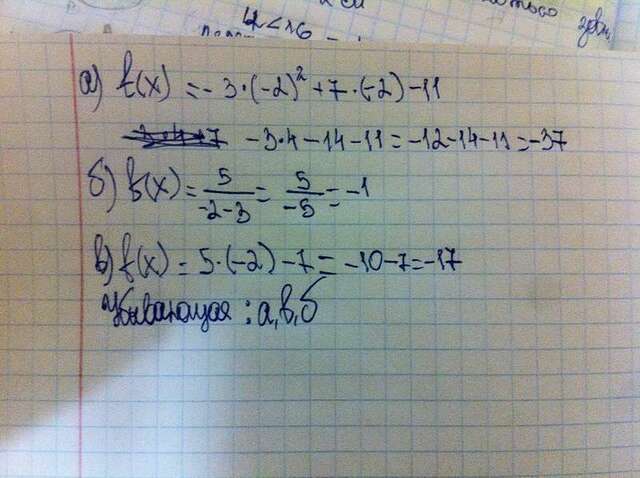 4<16
а) f(x) = -3·(-2)²+7·(-2)-11
-3·4-14-11=-12-14-11=-37
б) f(x)=5/-2-3=5/-5=-1
в) f(x)=5·(-2)-7=-10-7=-17
Убывающая: а,в,б